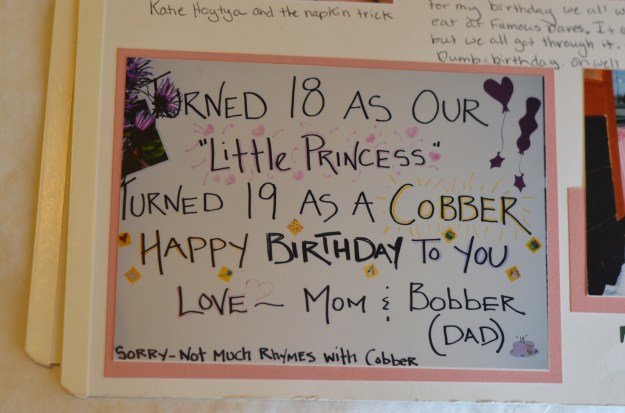 Katie Hoytya and the napkin trick
for my birthday we all w
eat at Famous Daves. It
but we all got through it.
Dumb birthday. oh well
TURNED 18 AS OUR
"Little PRINCESS"
TURNED 19 AS A COBBER
HAPPY BIRTHDAY TO YOU
LOVE ~ MOM & BOBBER
(DAD)
SORRY - Not Much RHYMES with Cobber